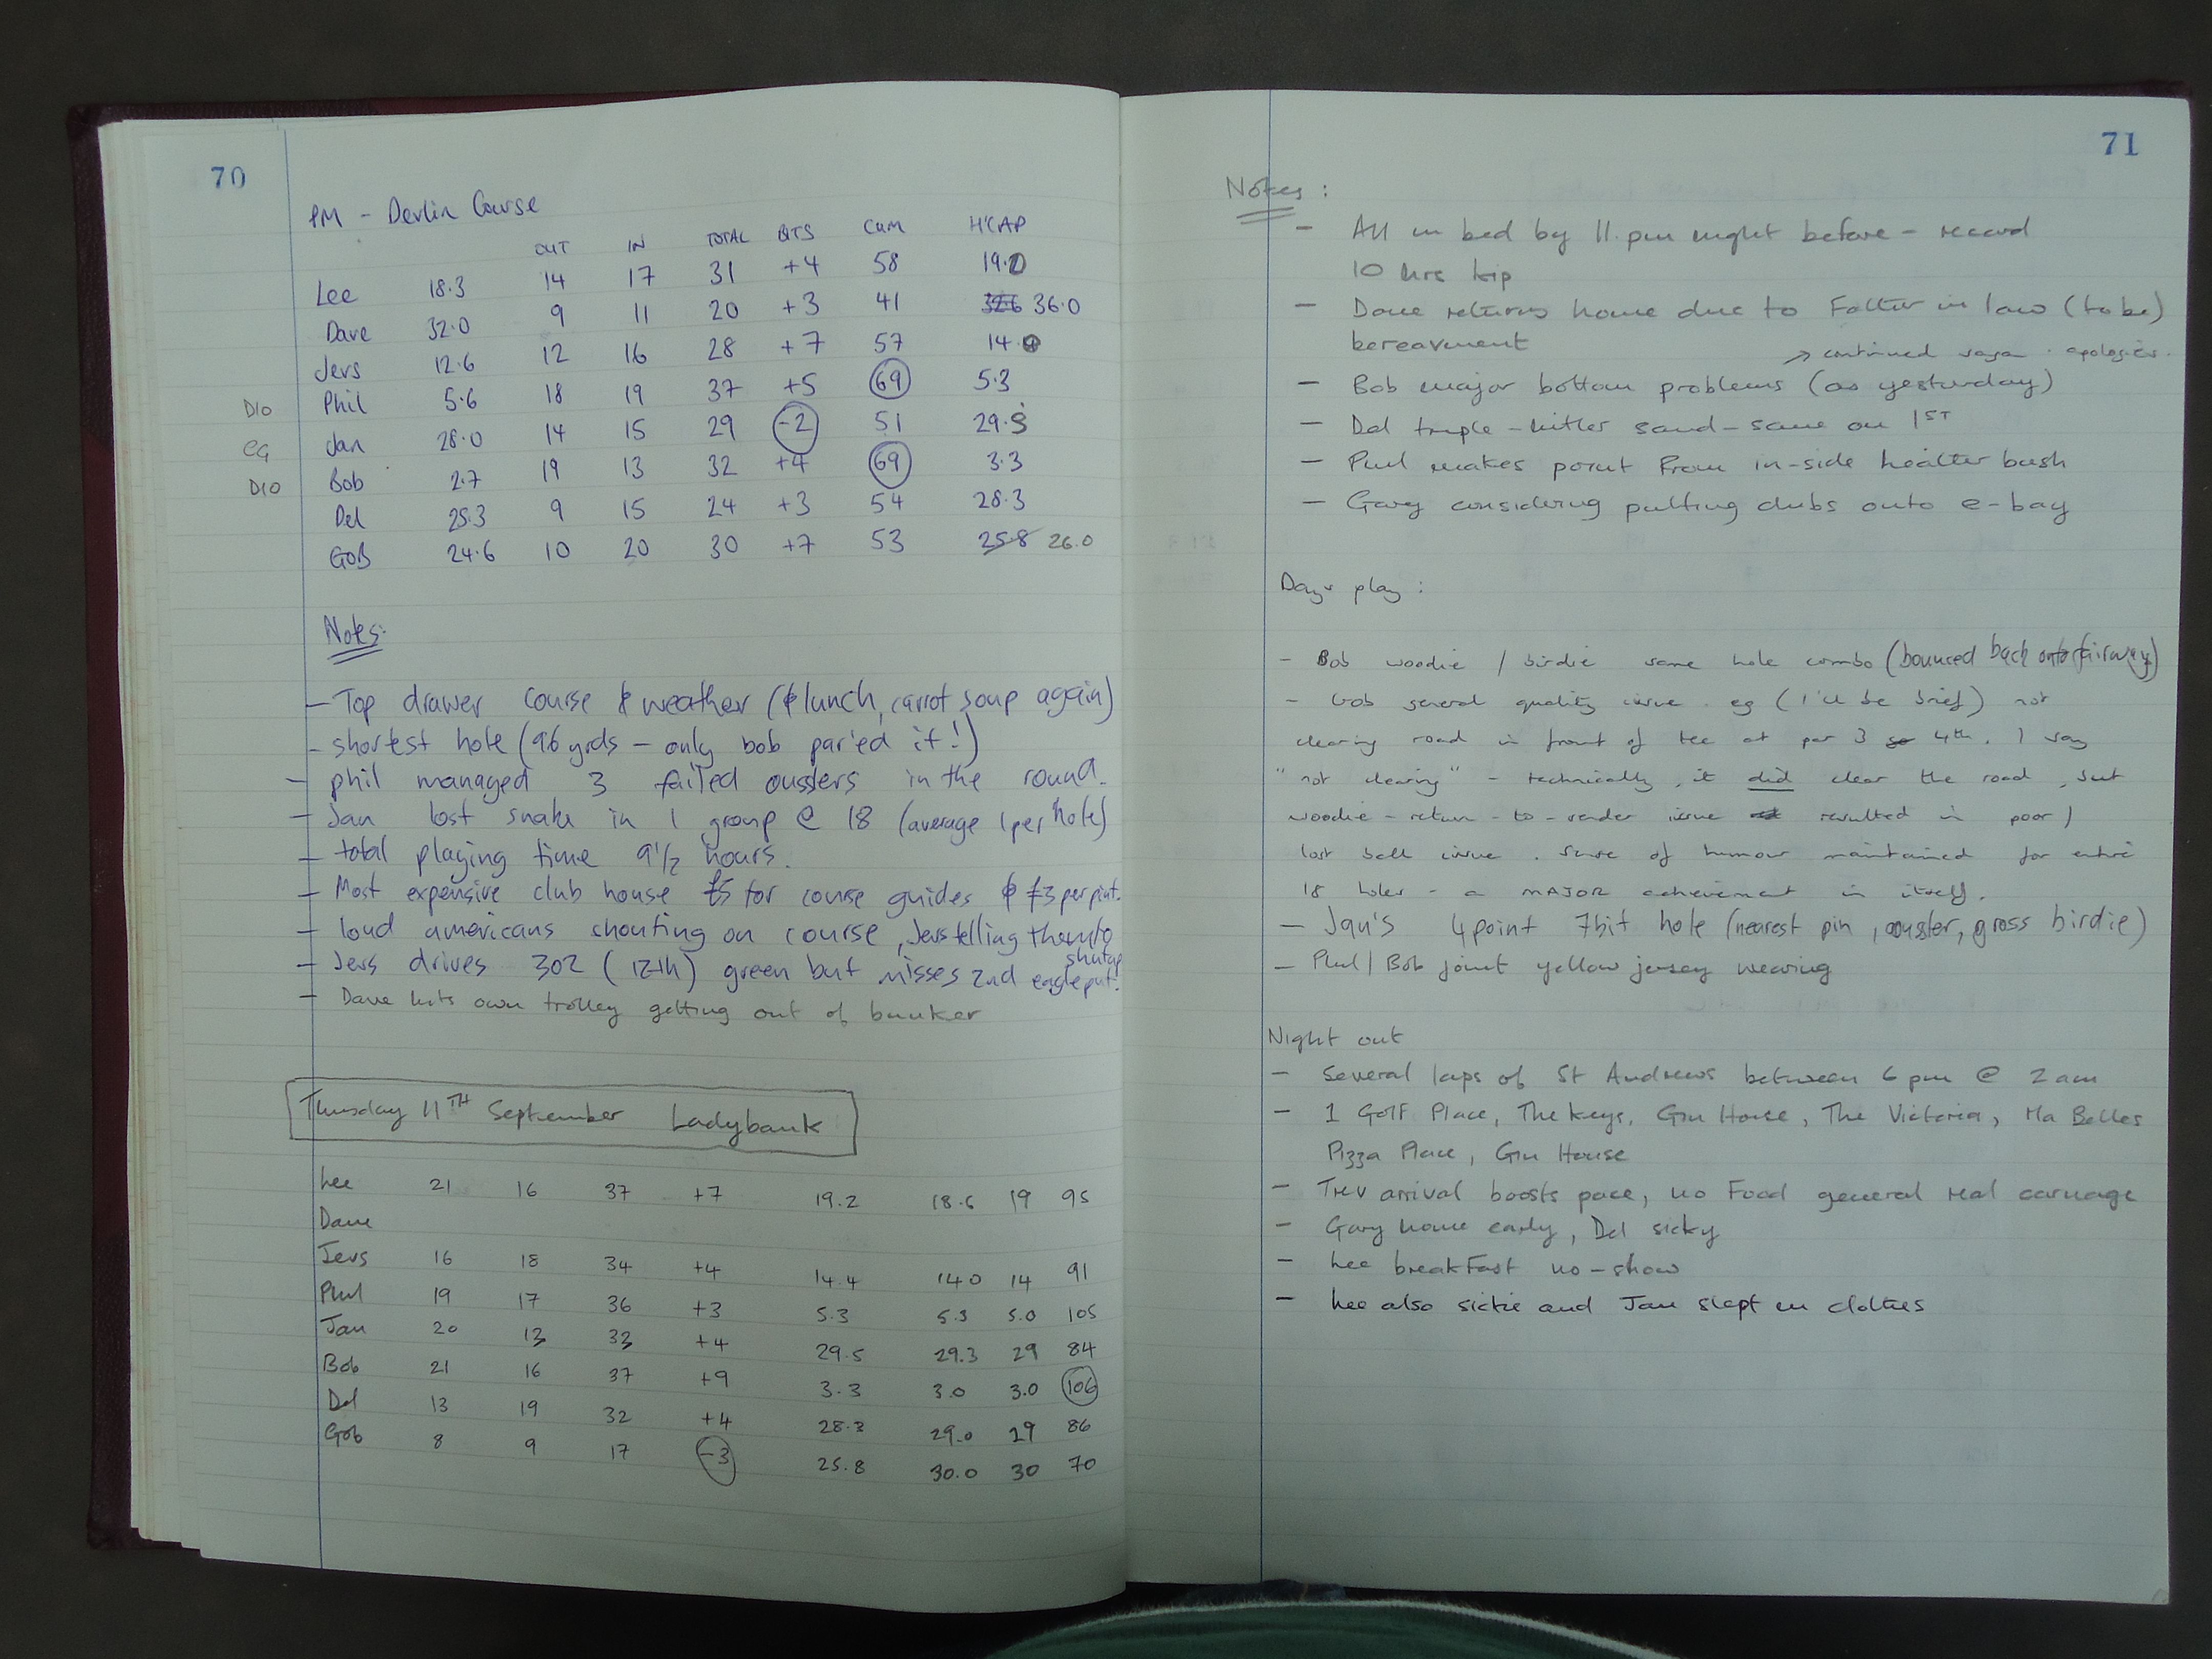 70
PM - Devlin Course
OUT IN TOTAL BITS CUM H'CAP
Lee 18.3 14 17 31 +4 58 19.0
Dave 32.0 9 11 20 +3 41 32.6 36.0
Jers 12.6 12 16 28 +7 57 14.0
D10 Phil 5.6 18 19 37 +5 69 5.3
CG Jan 28.0 14 15 29 -2 51 29.5
D10 Bob 2.7 19 13 32 +4 69 3.3
Del 25.3 9 15 24 +3 54 28.3
GOB 24.6 10 20 30 +7 53 25.8 26.0
Notes:
- Top drawer course & weather (& lunch, carrot soup again)
- shortest hole (96 yrds - only bob par'ed it!)
- phil managed 3 failed ousters in the round.
- Jan lost snake in 1 group @ 18 (average 1 per hole)
- total playing time 9 1/2 hours.
- Most expensive club house £5 for course guides & £3 per pint.
- loud americans shouting on course, Jers telling them to
shutup
- Jers drives 302 (12th) green but misses 2nd eagle put!
- Dave hits own trolley getting out of bunker
Thursday 11TH September Ladybank
Lee 21 16 37 +7 19.2 18.6 19 95
Dave
Jers 16 18 34 +4 14.4 14.0 14 91
Phil 19 17 36 +3 5.3 5.3 5.0 105
Jan 20 13 33 +4 29.5 29.3 29 84
Bob 21 16 37 +9 3.3 3.0 3.0 106
Del 13 19 32 +4 28.3 29.0 29 86
Gob 8 9 17 -3 25.8 30.0 30 70
71
Notes:
- All in bed by 11.pm night before - record
10 hrs kip
- Dave returns home due to Father in law (to be)
bereavement
→ continued saga. apologies.
- Bob major bottom problems (as yesturday)
- Del triple-hitler sand-save on 1ST
- Phil makes point from in-side heather bush
- Gary considering putting clubs onto e-bay
Days play:
- Bob woodie / birdie same hole combo (bounced back onto fairway)
- Gob several quality issue. eg (I'll be brief) not
clearing road in front of tee at par 3 4th. I say
"not clearing" - technically, it did clear the road, but
woodie-return-to-sender issue resulted in poor /
lost ball issue. Sense of humour maintained for entire
18 holes - a MAJOR achievement in itself.
- Jan's 4 point 7 bit hole (nearest pin, ouster, gross birdie)
- Phil/Bob joint yellow jersey wearing
Night out
- Several laps of St Andrews between 6pm @ 2am
- 1 Golf Place, The Keys, Gin House, The Victoria, Ma Belles
Pizza Place, Gin House
- Trev arrival boosts pace, no Food general real carnage
- Gary home early, Del sicky
- Lee breakfast no-show
- Lee also sickie and Jan slept in clothes